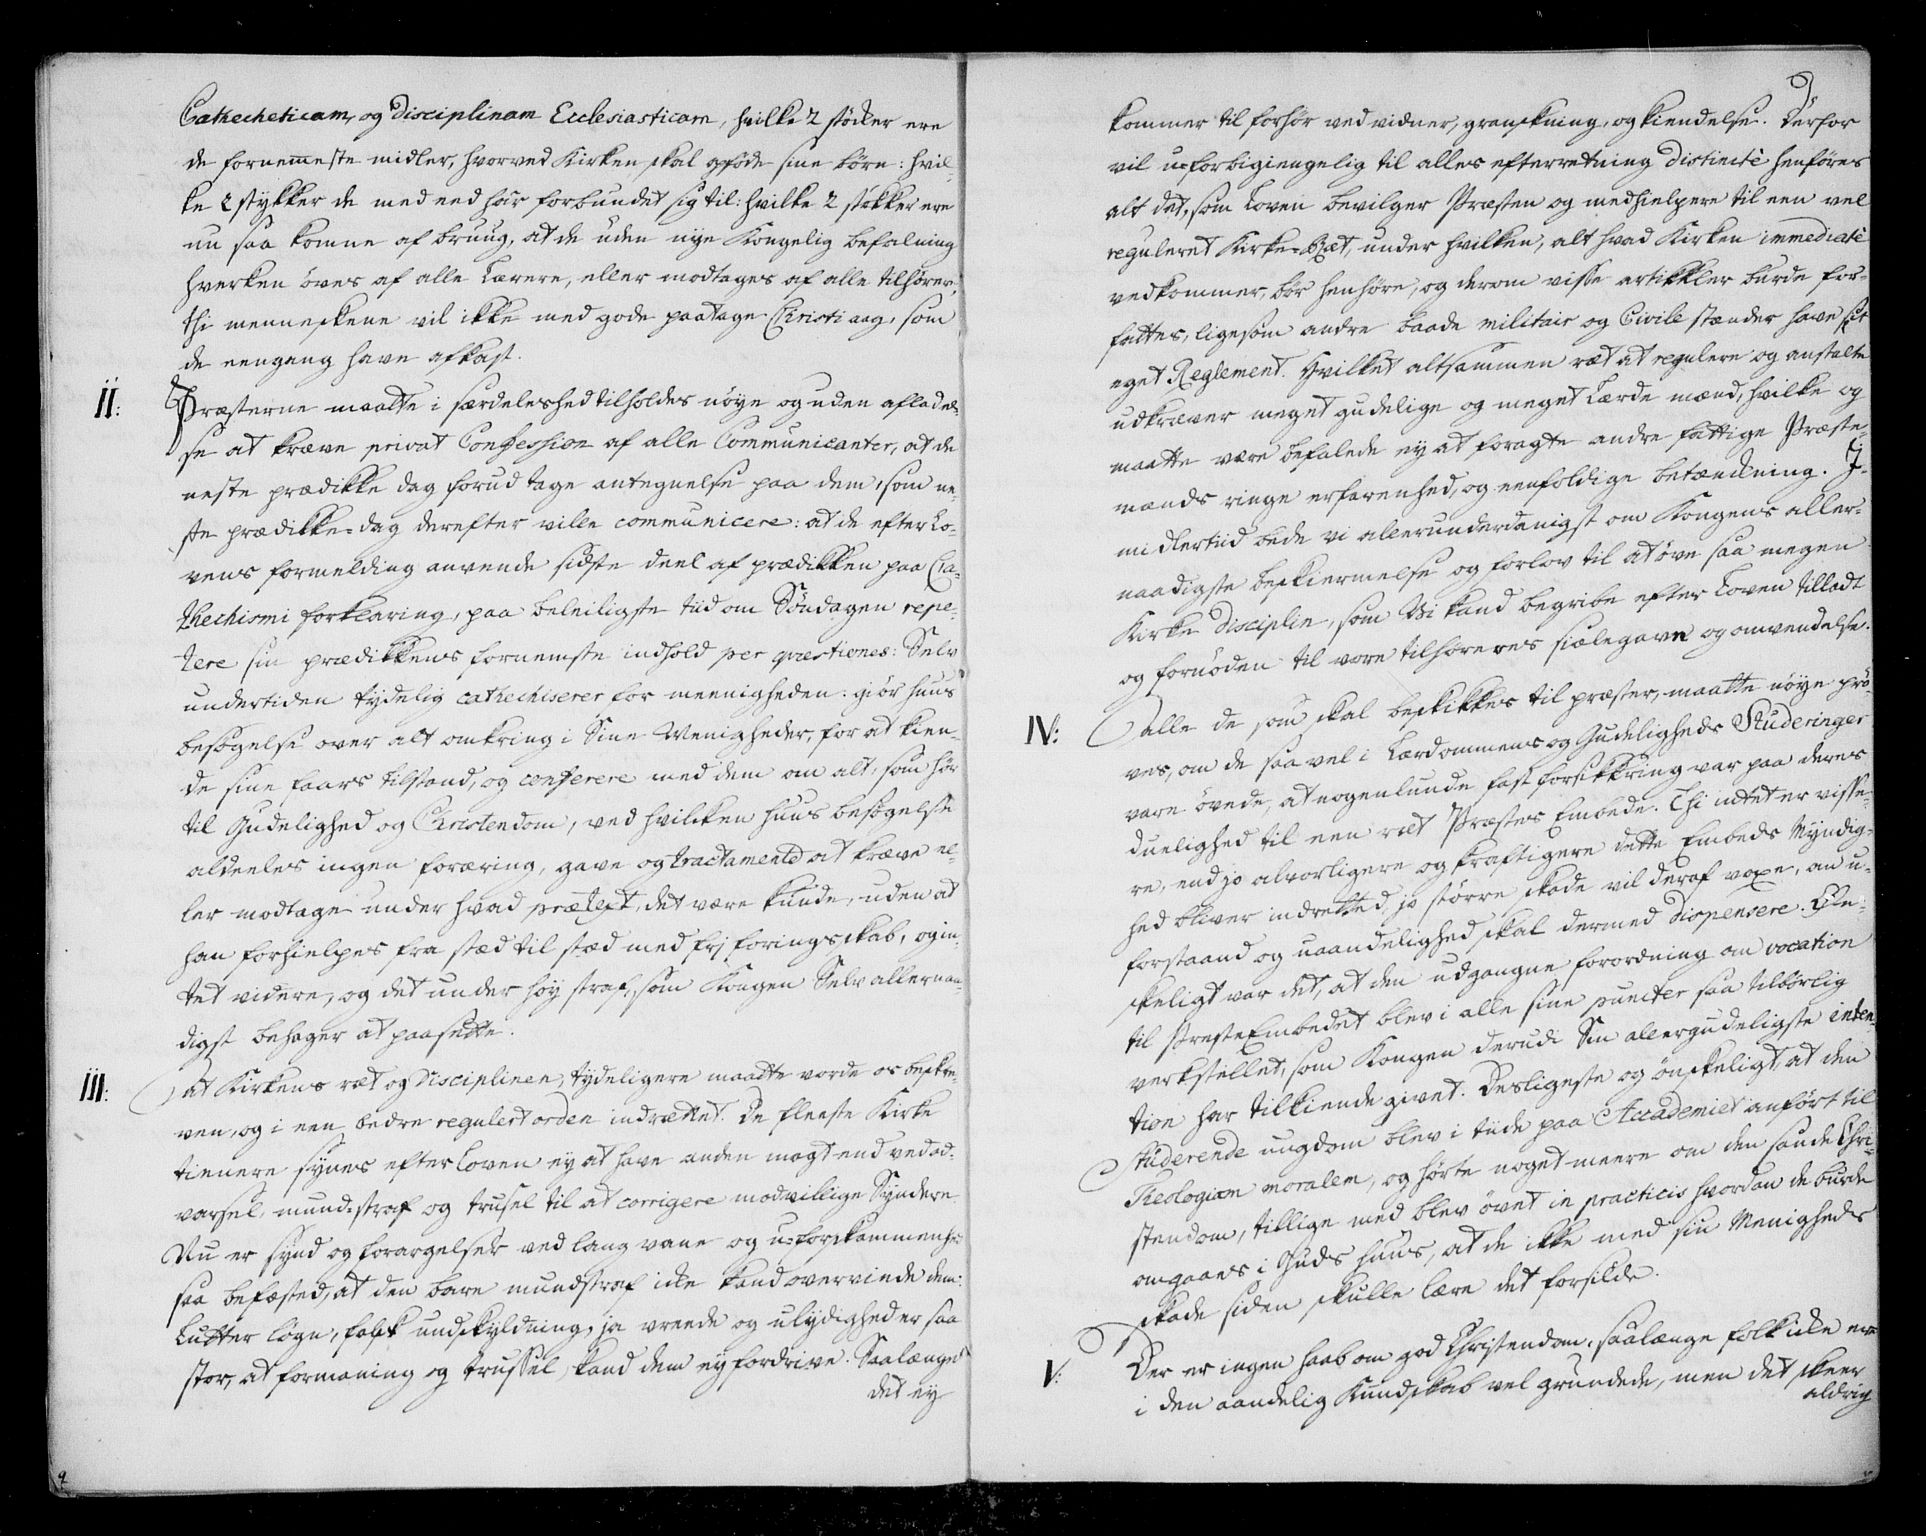 Cathecheticam, og Disciplinam Ecclesiasticam, hvilke 2 støcker ere
de fornemmeste midler, hvorved Kirken skal opføde sine børn: hvil-
ke 2 stykker de med eed har forbundet sig til: hvilke 2 støkker ere
nu saa komne af bruug, at de uden nye Kongelig befalning
hverken øves af alle Lærere, eller modtages af alle tilhører,
thi menneskene vil ikke med gode paatage Christi aag, som
de eengang have afkast.
II: Præsterne maatte i særdeleshed tilholdes nøye og uden afladel-
se at kræve privat Confession af alle Communicanter, at de
neste prædikke dag forud tage antegnelse paa dem, som ne-
ste prædikke-dag derefter ville communicere: at de efter Lo-
vens formelding anvende sidste deel af prædikken paa Ca-
thechismi forklaring, paa beleiligste tiid om Søndagen repe-
tere sin prædikkens fornemste indhold per qvæstiones: Selv
undertiden tydelig cathechiserer for meenigheden: giør huus
besøgelse over alt omkring i Sine Menigheder, for at kien-
de sine faars tilstand, og conferere med dem om alt, som hør
til Gudelighed og Christendom, ved hvilcken huus besøgelse
aldeeles ingen foræring, gave og tractamente at kræve el-
ler modtage under hvad prætext, det være kunde, uden at
han forhielpes fra stæd til stæd med frj foringsskab, og in-
tet videre, og det under høy straf, som Kongen Selv allernaa-
digst behager at paasette.
III: at Kirkens ræt og Disciplinen, tydeligere maatte vorde os beskre-
ven, og i een bedre regulert orden indrættet. De fleeste Kirke
tienere synes efter Loven ey at have anden magt end ved ad-
varsel, mund-straf og trusel til at corrigere modvillige Syndere.
Nu er synd og forargelser ved lang vane og u-forskammenhed
saa befæsted, at den bare mundstraf icke kand overvinde dem:
Lutter løgn, falsk undskyldning, ja vreede og ulydighed er saa
stor, at formaning og trussel kand dem ey fordrive. Saalænge
det ey
9
kommer til forhør ved vidner, granskning, og kiendelse. Derfor
vil u-forbigiengelig til alles efterretning distinctè henføres
alt det, som Loven bevilger Præsten og medhielpere til een vel
reguleret Kirke-Ræt, under hvilken, alt hvad Kirken immediatè
vedkommer, bør henhøre, og derom visse artikkler burde for-
fattes, ligesom andre baade militair og Civile stænder have sit
eget Reglement. Hvilket altsammen ræt at regulere og anstalte
udkræver meget gudelige og meget Lærde mænd, hvilke og
maatte være befalede ey at foragte andre fattige Præste-
mænds ringe erfarenhed, og eenfoldige betænckning. I-
midlertiid bede vi allerunderdanigst om Kongens aller-
naadigste beskiermelse og forlov til at øve saa megen
Kirke disciplin, som Vi kand begribe efter Loven tilladt
og fornøden til vore tilhøreres siælegavn og omvendelse.
IV: alle de som skal beskikkes til præster, maatte nøye prø-
ves, om de saa vel i Lærdommens og Gudeligheds Studeringer
vare øvede, at nogenlunde fast forsikkring var paa deres
duelighed til een ræt Præstes Embede. Thi intet er visse-
re, end jo alvorligere og kraftigere dette Embeds Myndig-
hed bliver indrettet, jo større skade vil deraf voxe, om u-
forstaand og uaandelighed skal dermed dispensere. Øn-
skeligt var det, at den udgangne forordning om vocation
til PræsteEmbedet blev i alle sine puncter saa tilbørlig
verkstellet, som Kongen derudi Sin allergudeligste inten-
tion har tilkiende givet. Desligeste og ønskeligt, at den
studerende ungdom blev i tiide paa Accademiet anført til
Theologiam moralem, og hørte noget meere om den sande Chri-
stendom, tillige med blev øvet in practicis hvordan de burde
omgaaes i Guds huus, at de ikke med sin Menigheds
skade siden skulle lære det forsilde.
V: Der er ingen haab om god Christendom, saalænge folk icke ere
i den aandelig Kundskab vel grundede, men det skeer
aldrig